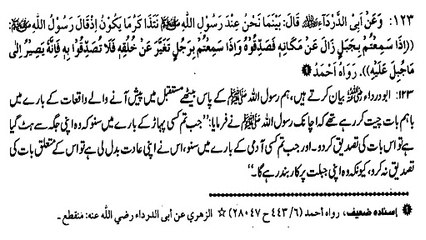 ۱۲۳: وَعَنْ اَبِی الدَّرْدَآءِ ﷺ قَالَ: بَيْنَمَا نَحْنُ عِنْدَ رَسُوْلِ اللّٰهِ ﷺ نَتَذَاكَرُ مَا يَكُوْنُ اِذْ قَالَ رَسُوْلُ اللّٰهِ ﷺ:
((اِذَا سَمِعْتُمْ بِجَبَلٍ زَالَ عَنْ مَكَانِهِ فَصَدِّقُوْهُ وَاِذَا سَمِعْتُمْ بِرَجُلٍ تَغَيَّرَ عَنْ خُلُقِهِ فَلَا تُصَدِّقُوْا بِهِ فَاِنَّهُ يَصِيْرُ اِلٰی
مَاجُبِلَ عَلَيْهِ)). رَوَاهُ اَحْمَدُ ❶
۱۲۳: ابودرداء رضی اللہ عنہ بیان کرتے ہیں، ہم رسول اللہ ﷺ کے پاس بیٹھے مستقبل میں پیش آنے والے واقعات کے بارے میں
باہم بات چیت کر رہے تھے کہ اچانک رسول اللہ ﷺ نے فرمایا: ”جب تم کسی پہاڑ کے بارے میں سنو کہ وہ اپنی جگہ سے ہٹ گیا
ہے تو اس بات کی تصدیق کر دو۔ اور جب تم کسی آدمی کے بارے میں سنو، اس نے اپنی عادت بدل لی ہے تو اس کے متعلق بات کی
تصدیق نہ کرو، کیونکہ وہ اپنی جبلت پر کاربند رہے گا۔“
❶ اسناده ضعيف، رواه أحمد (٤٤٣/٦ ح ٢٨٠٤٧) ☆ الزهري عن أبي الدرداء رضي الله عنه: منقطع.